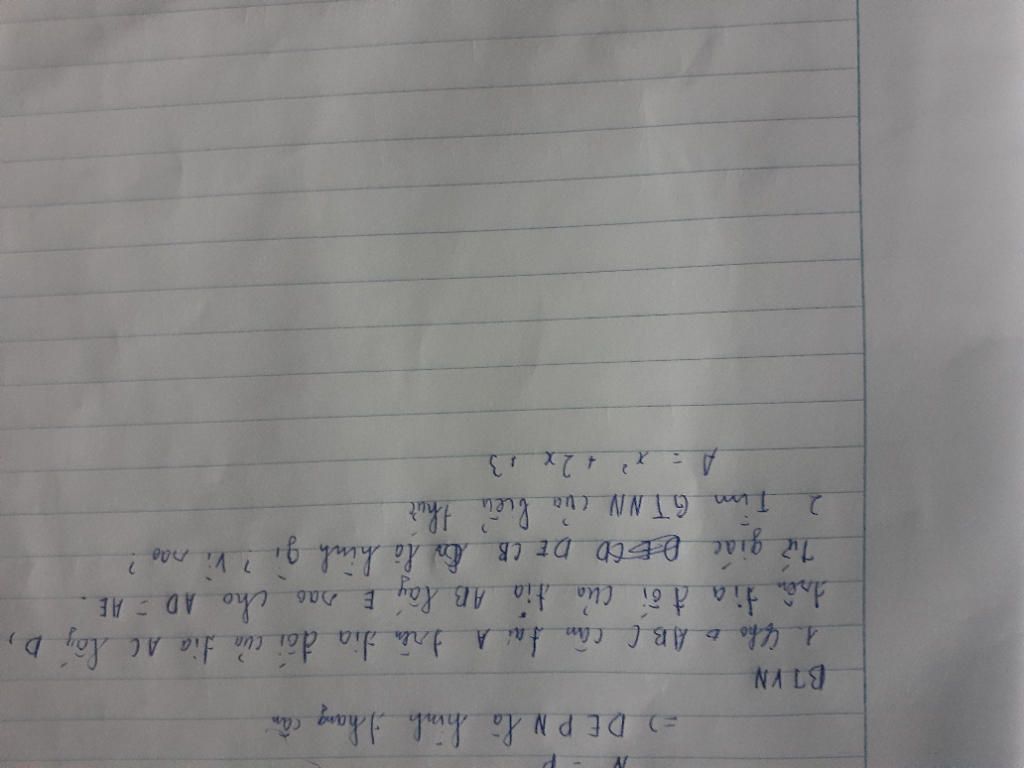 N = P
=) DEPN là hình thang cân
BTVN
1. Cho △ ABC cân tại A trên tia đối của tia AC lấy D,
trên tia đối của tia AB lấy E sao cho AD = AE.
Tứ giác DECB là hình gì? Vì sao?
2 Tìm GTNN của biểu thức
A = x² + 2x + 3